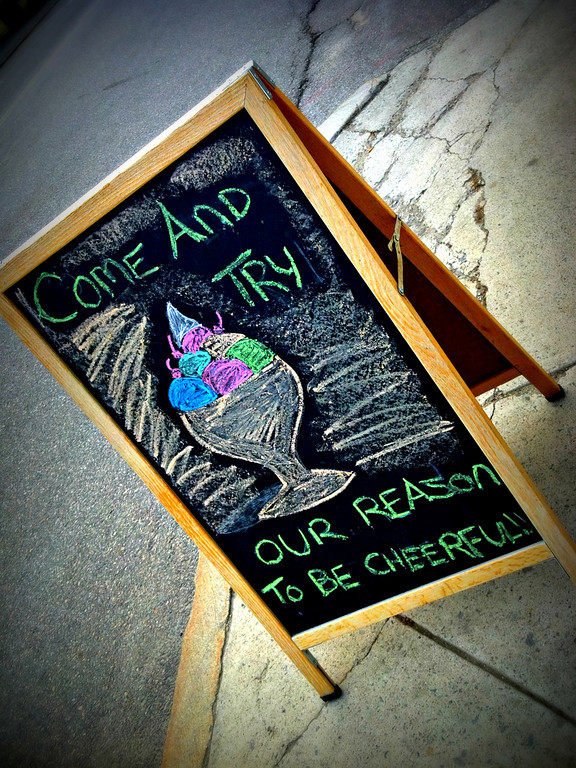 Come And
Try
Our Reason
To Be Cheerful!!